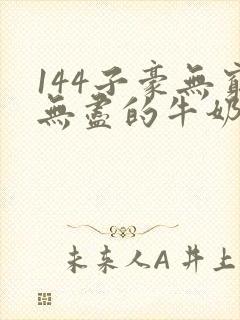 144子豪無窮
無盡的牛奶
未来人A 井上